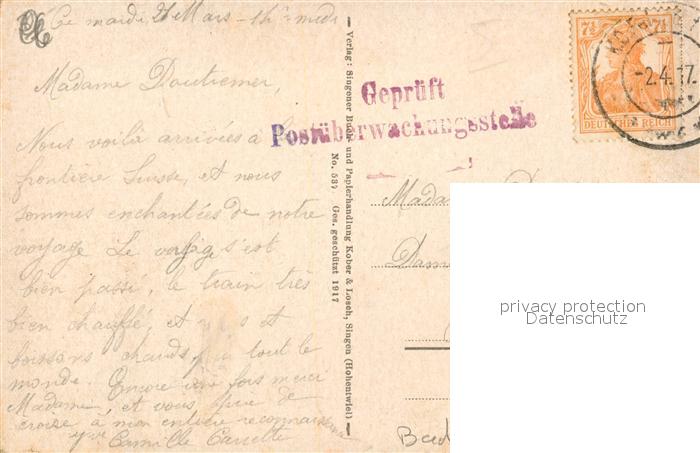 Ce mardi 27 Mars - 1h midi
Madame Doutremer,
Nous voilà arrivées à la
frontière Suisse, et nous
sommes enchantées de notre
voyage Le voyage s'est
bien passé, le train très
bien chauffé, et
boissons chauds, tout le
monde. Encore une fois merci
Madame, et vous prie de
croire à mon entière reconnaissance
Camille Carrette
Verlag: Singener Buch- und Papierhandlung Kober & Losch, Singen (Hohentwiel)
No. 537 Ges. geschützt 1917
Geprüft
Postüberwachungsstelle
7½ 7½
DEUTSCHES REICH
-2.4.17.
Madame
privacy protection
Datenschutz